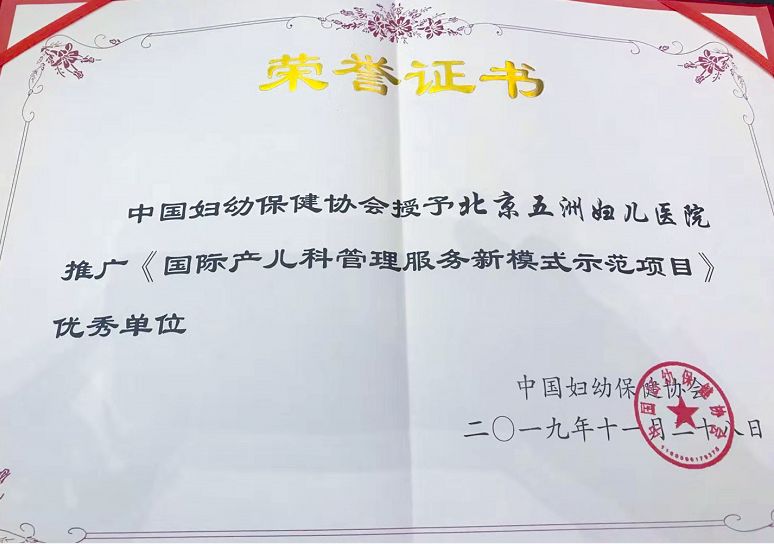 荣誉证书
中国妇幼保健协会授予北京五洲妇儿医院
推广《国际产儿科管理服务新模式示范项目》
优秀单位
中国妇幼保健协会
二〇一九年十一月二十八日